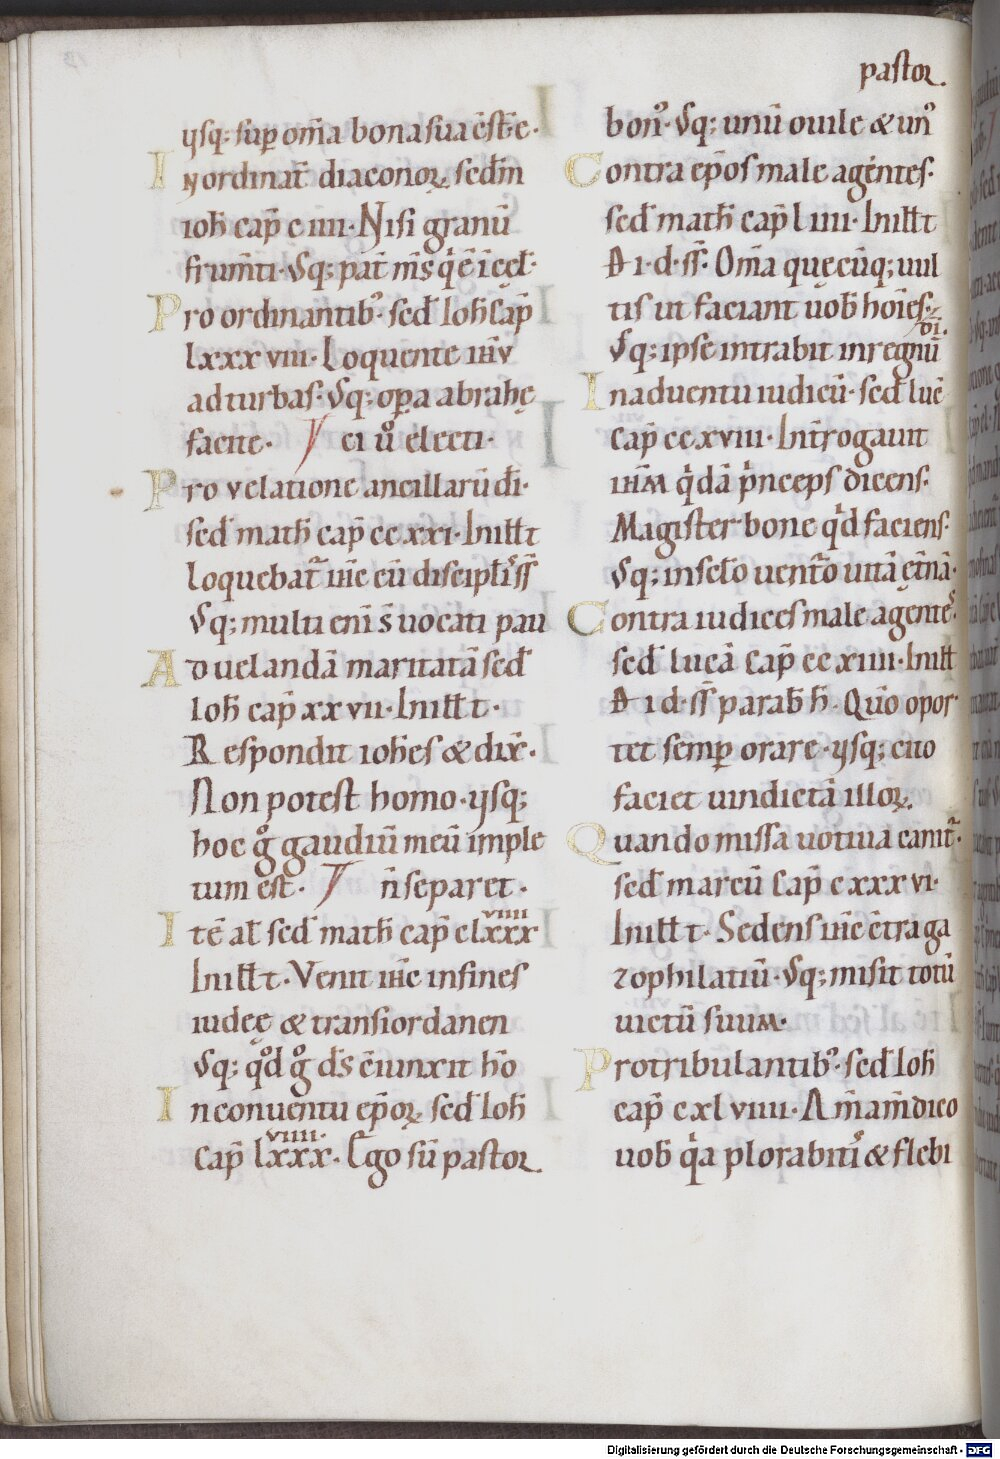 ysq; sup om̄a bona sua c̄st.e.
In ordinat̄ diaconoꝝ. sed̄m
ioh̄ cap̄ c iiii. Nisi granū
frum̄ti. Vsq; pat̄ m̄s q̇ ē ī cęł.
Pro ordinantib᷒. sed̄ Ioh̄ Cap̄
lxxx viii. Loquente ih̄v
ad turbas. Vsq; oꝑa abrahę
facite. V ei ů electi.
Pro velatione ancillarū d̄i.
sed̄ math̄ cap̄ cc xxi. In iłł t
loquebat᷑ ih̄c cū discipłis᷒ ss̄
Vsq; multi eni̅ s̄ uocati pau
Ad uelandā maritatā sed̄
Ioh̄ cap̄ xx vii. In iłł t.
Respondit ioh̄es & dix̄.
Non potest homo. ysq;
hoc g̊ gaudiū meū imple
tum est. V n̄ separet.
Itē ał sed̄ math̄ cap̄ clxxx viiii
In iłł t. Venit ih̄c in fines
iudeę & transiordanen
Vsq; q̊d g̊ d̄s c̄iunxit h̄o
In conuentu ep̄oꝝ sed̄ Ioh̄
Cap̄ lxxx viiii. Ego sū pastor
pastor.
bon᷒. Vsq; unū ouile & un᷒
Contra ep̄os male agentes.
sed̄ math̄ cap̄ l iiii. In iłł t
D i. d. ss̄. Om̄a quęcūq; uul
tis ut faciant uob̄ hoīes.
Vsq; ipse intrabit in regnū ði.
In aduentu iudicū. sed̄ luc̄
Cap̄ cc xviii. Int̄rogauit
ih̄m q̇dā ṗnceps dicens.
Magister bone q̇d faciens.
Vsq; in sclo uent̄o uitā ęt̄nā.
Contra iudices male agentes᷒
sed̄ lucā Cap̄ cc xiiii. In iłł t
D i d. ss̄ parab̄ h̄. Qūo opor
tet semꝑ orare. ysq; cito
faciet uindictā illoꝝ.
Quando missa uotiua canit᷑.
sed̄ marcū Cap̄ c xxx vi.
In iłł t. Sedens ih̄c c̄tra ga
zophilatiū. Vsq; misit totū
uictū suum.
Pro tribulantib᷒. sed̄ Ioh̄
cap̄ c xl viiii. Am̄ am̄ dico
uob̄ q̇a plorabiti᷒ & flebi
Digitalisierung gefördert durch die Deutsche Forschungsgemeinschaft - DFG